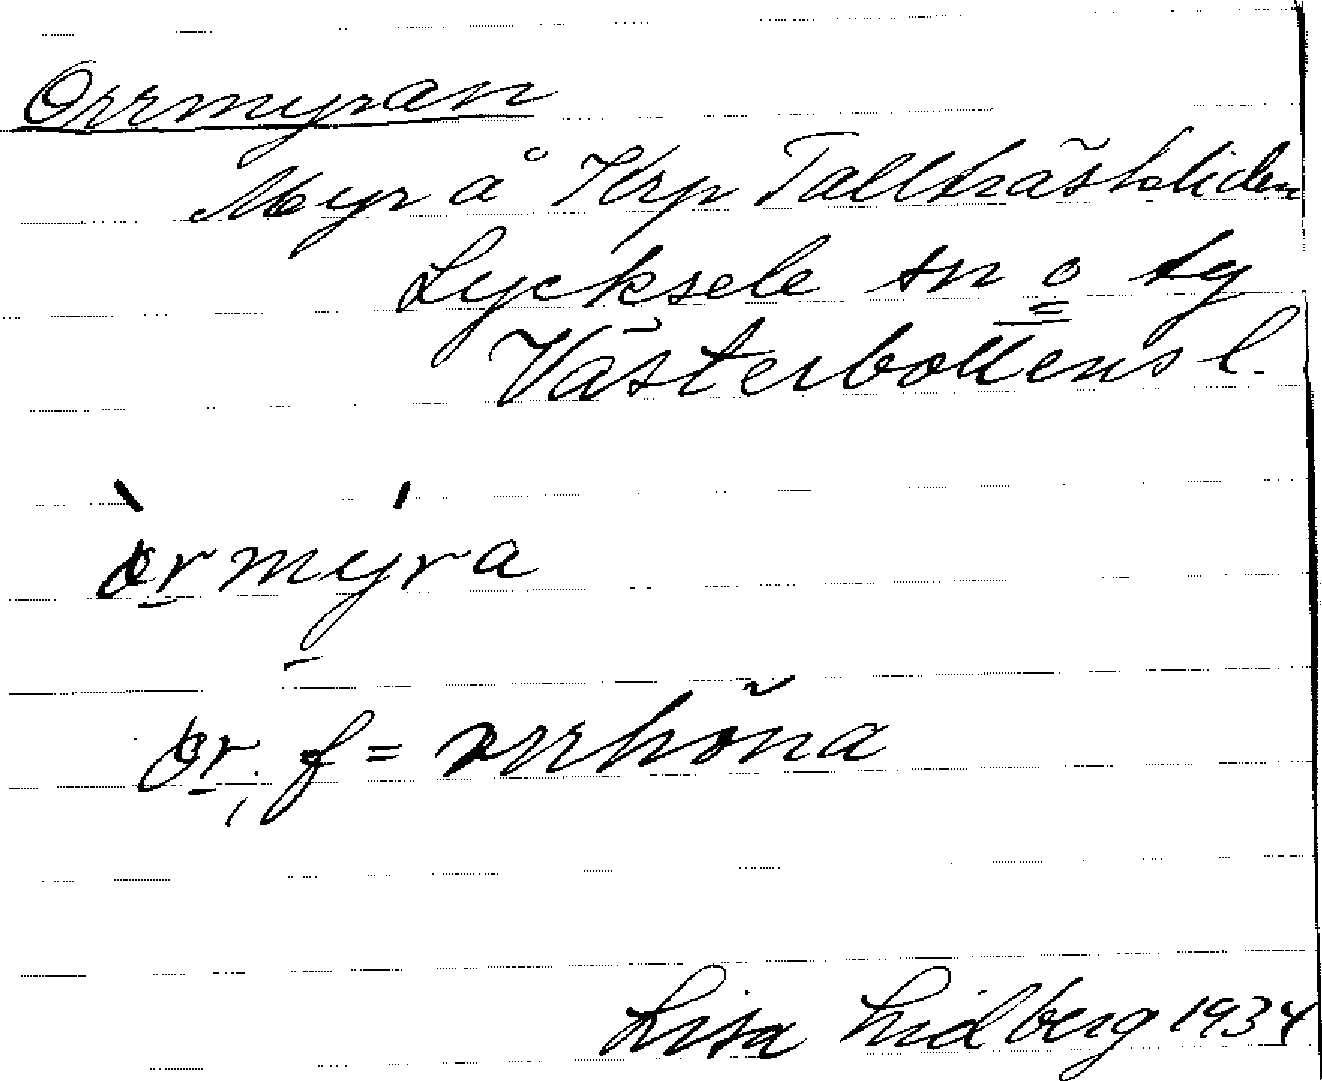 Orrmyran
Myr å Krp Tallträskliden
Lycksele sn o tg
Västerbottens l.
òrmy̱ra
or, f = orrhöna
Lisa Lidberg 1934